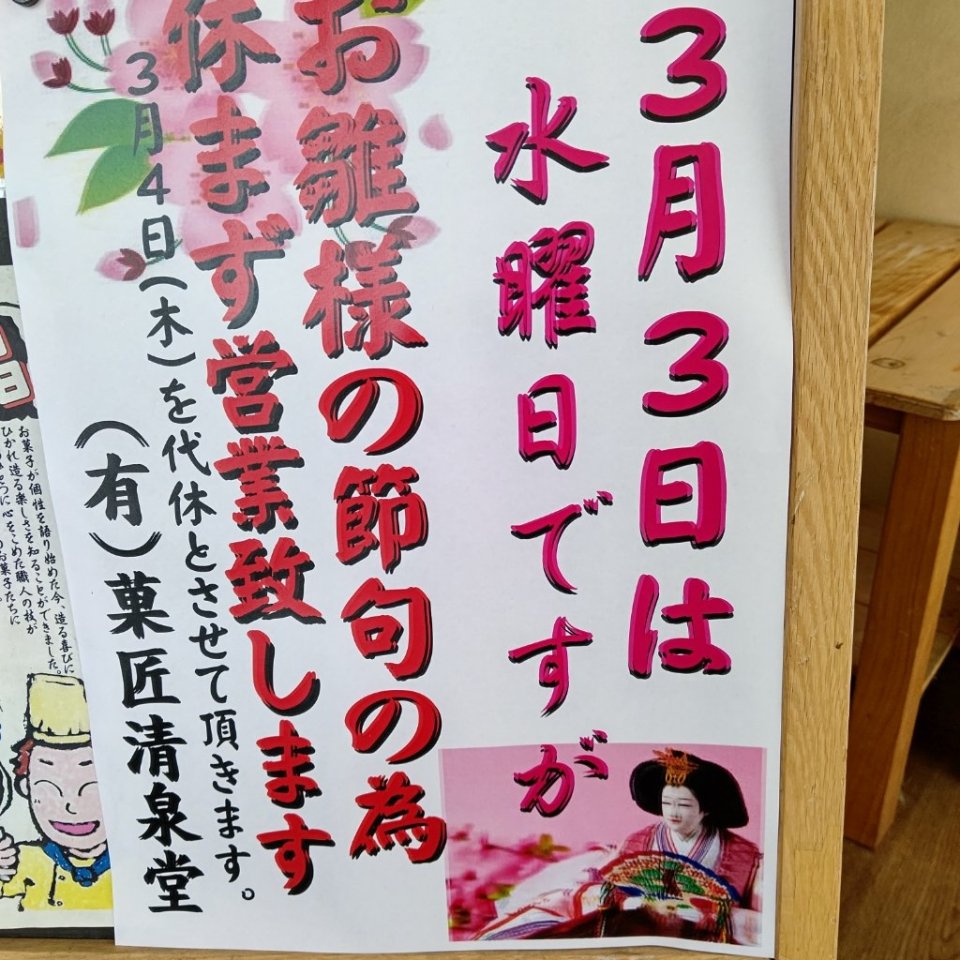 3月3日は
水曜日ですが
お雛様の節句の為
休まず営業致します
3月4日(木)を代休とさせて頂きます。
(有)菓匠清泉堂
お菓子が個性を語り始めた今、造る喜びに
ひかれ造る楽しさを知ることができました。